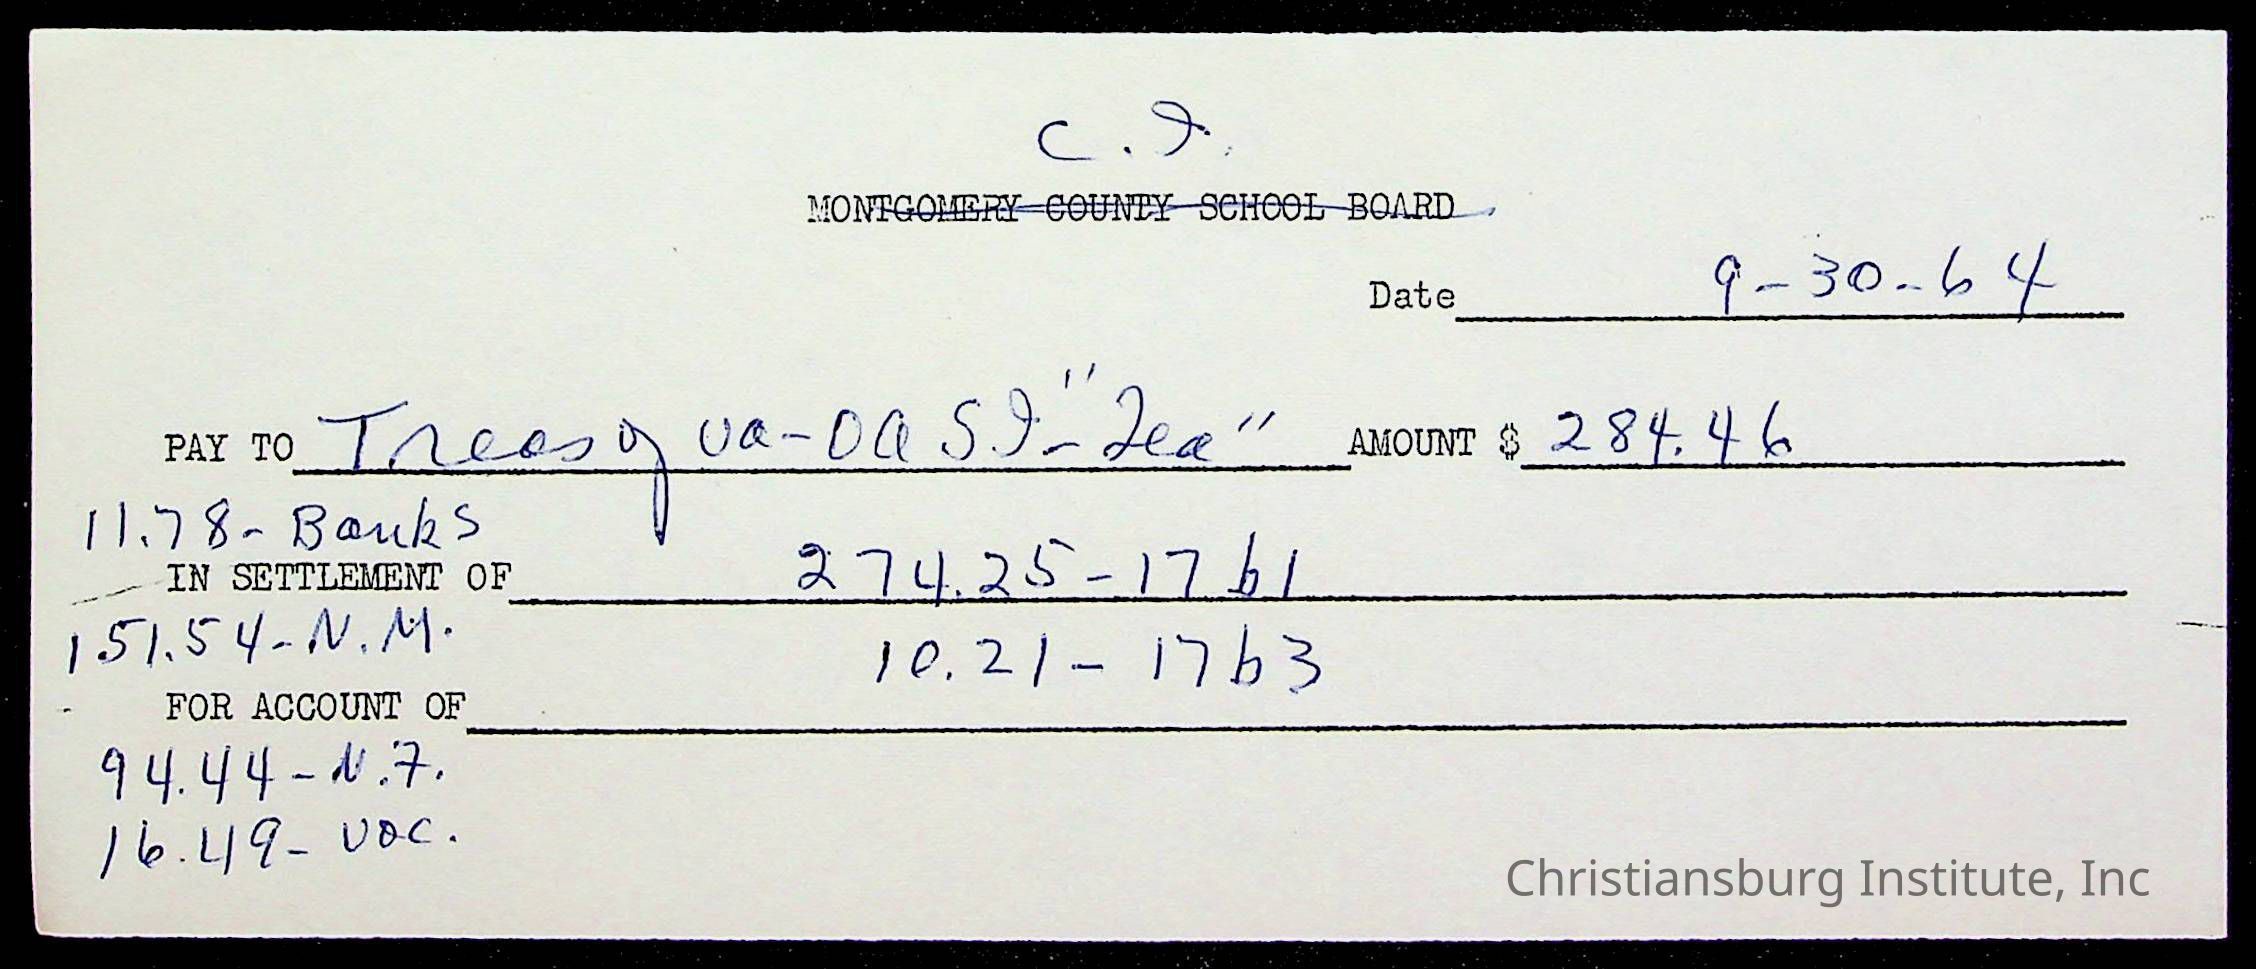 C. I.
MONTGOMERY COUNTY SCHOOL BOARD
Date 9-30-64
PAY TO Treas of Va-OASI-"Tea" AMOUNT $ 284.46
11.78- Banks
IN SETTLEMENT OF 274.25-17b1
151.54-N.M.
10.21- 17b3
FOR ACCOUNT OF
94.44-N.F.
16.49- Voc.
Christiansburg Institute, Inc